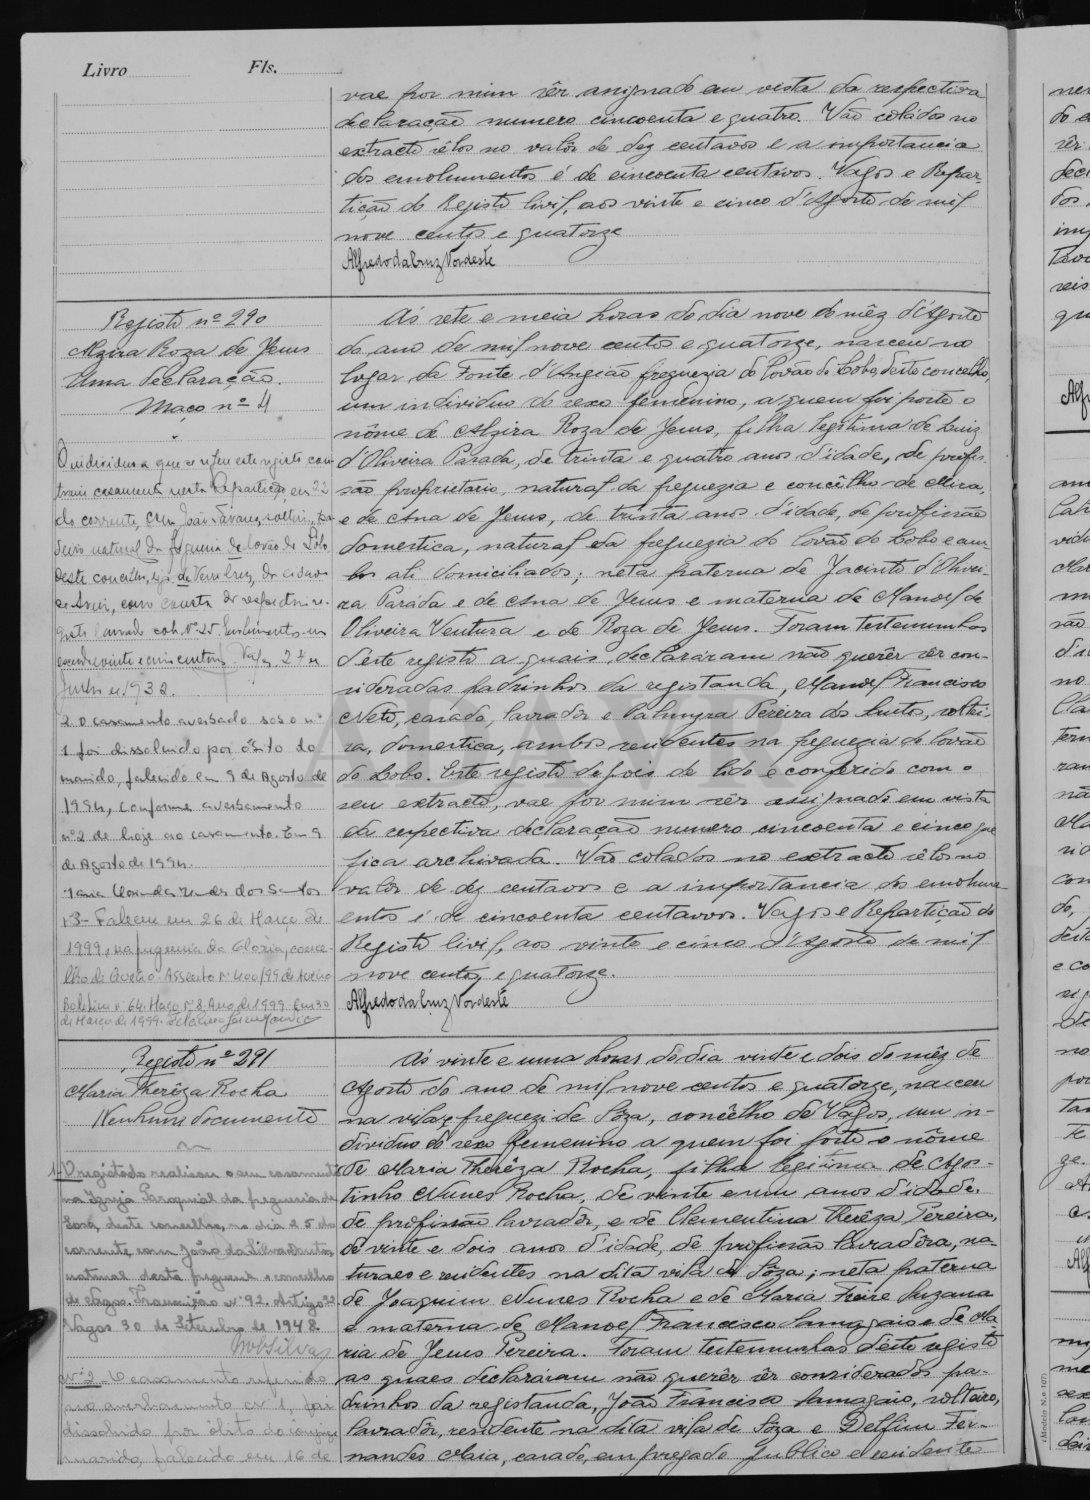 Livro Fls.
vae por mim sêr assignado em vista da respectiva
declaração numero cincoenta e quatro. Vão colados no
extracto sêlos no valôr de dez centavos e a importancia
dos emolumentos é de cincoenta centavos. Vagos e Repar-
tição do Registo Civil, aos vinte e cinco d'Agosto de mil
nove centos e quatorze
Alfredo da Cruz Nordeste
Registo nº 290
Alzira Roza de Jesus
Uma declaração.
Maço nº 4
O individuo a que se refere este registo con-
traiu casamento nesta Repartição, em 22
do corrente, com João Tavares, solteiro,
natural da freguesia de Covão do Lobo
deste concelho,
de Aveiro, como consta do respectivo re-
gisto lavrado sob Nº 25.
Vagos, 24 de
Junho de 1932.
2. O casamento averbado sob o nº
1 foi dissolvido por óbito do
marido, falecido em 9 de Agosto de
1994, conforme averbamento
nº 2 de hoje ao casamento. Em 9
de Agosto de 1994.
dos Santos
3- Faleceu em 26 de Março de
1999, na freguesia da Glória, conce-
lho de Aveiro. Assento nº 400/99 de Aveiro
Boletim nº 64. Maço nº 8. Ano de 1999. Em 30
de Março de 1999.
Ás sete e meia horas do dia nove do mêz d'Agosto
do ano de mil nove centos e quatorze, nasceu no
lugar da Fonte d'Angião freguezia do Covão do Lobo, deste concelho,
um individuo do sexo femenino, a quem foi posto o
nôme de Alzira Roza de Jesus, filha legitima de Luiz
d'Oliveira Parada, de trinta e quatro anos d'idade, de profis-
são proprietario, natural da freguezia e concêlho de Mira,
e de Ana de Jesus, de trinta anos d'idade, de profissão
domestica, natural da freguezia do Covão do Lobo e am-
bos ali domiciliados; neta paterna de Jacinto d'Olivei-
ra Parada e de Ana de Jesus e materna de Manoel de
Oliveira Ventura e de Roza de Jesus. Foram testemunhas
d'este registo a quais, declararam não querêr sêr con-
sideradas padrinhos da registanda, Manoel Francisco
Neto, casado, lavradôr e Palmyra Pereira dos Santos, soltei-
ra, domestica, ambos residentes na freguezia do Covão
do Lobo. Este registo depois de lido e conferido com o
seu extracto, vae por mim sêr assignado em vista
da respectiva declaração numero cincoenta e cinco que
fica archivada. Vão colados no extracto sêlos no
valôr de dez centavos e a importancia dos emolum-
entos é de cincoenta centavos. Vagos e Repartição do
Registo Civil, aos vinte e cinco d'Agosto de mil
nove centos e quatorze.
Alfredo da Cruz Nordeste
ADAVR
Registo nº 291
Maria Therêza Rocha
Nenhum documento
1- O registado realisou o seu casamento
na Igreja Paroquial da freguesia de
Soza, deste concelho, no dia 25 do
corrente, com João da Silva Santos,
natural desta freguesia e concelho
de Vagos. Transcrição Nº 92. Artigo 22
Vagos 30 de Setembro de 1948.
Silva
Nº 2 O casamento referido
no averbamento nº 1 foi
dissolvido por óbito do conjuge
marido, falecido em 16 de
Ás vinte e uma horas do dia vinte e dois do mêz de
Agosto do ano de mil nove centos e quatorze, nasceu
na vila e freguezi de Sôza, concêlho de Vagos, um in-
dividuo do sexo femenino a quem foi posto o nôme
de Maria Therêza Rocha, filha legitima de Agos-
tinho Nunes Rocha, de vinte e um anos d'idade,
de profissão lavradôr, e de Clementina Therêza Pereira,
de vinte e dois anos d'idade, de profissão lavradôra, na-
turaes e residentes na dita vila de Sôza; neta paterna
de Joaquim Nunes Rocha e de Maria Freire Suzana
e materna de Manoel Francisco Samagaio e de Ma-
ria de Jesus Pereira. Foram testemunhas d'este registo
as quaes declararam não querêr sêr considerados pa-
drinhos da registanda, João Francisco Samagaio, solteiro,
lavradôr, residente na dita vila de Sôza e Delfim Fer-
nandes Maia, casado, empregado publico e residente
(Modelo N.º 107)